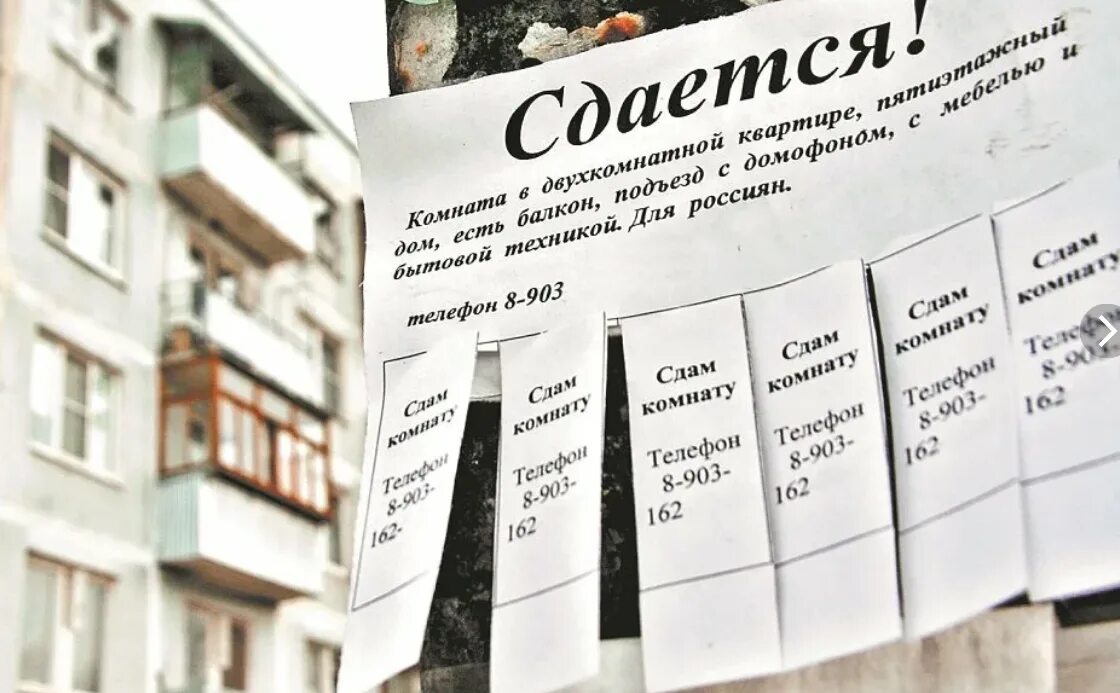 Сдается!
Комната в двухкомнатной квартире, пятиэтажный
дом, есть балкон, подъезд с домофоном, с мебелью и
бытовой техникой. Для россиян.
телефон 8-903
Сдам
комнату
Телефон
8-903-
162-
Сдам
комнату
Телефон
8-903-
162
Сдам
комнату
Телефон
8-903-
162
Сдам
комнату
Телефон
8-903-
162
Сдам
комнату
Телефон
8-903-
162
Сдам
комнату
Телефон
8-903-
162